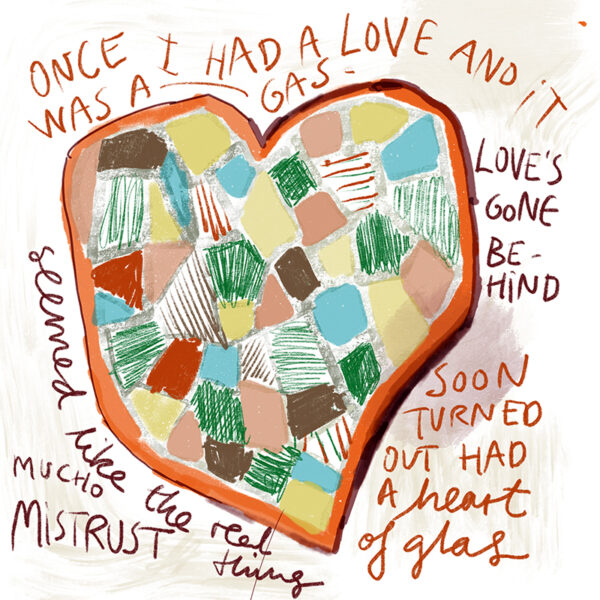 ONCE I HAD A LOVE AND iT
WAS A GAS
LOVE'S
GONE
BE-
HiND
SOON
TURNED
OUT HAD
A heart
of glas
seemed like the real
thing
MUCHO
MiSTRUST